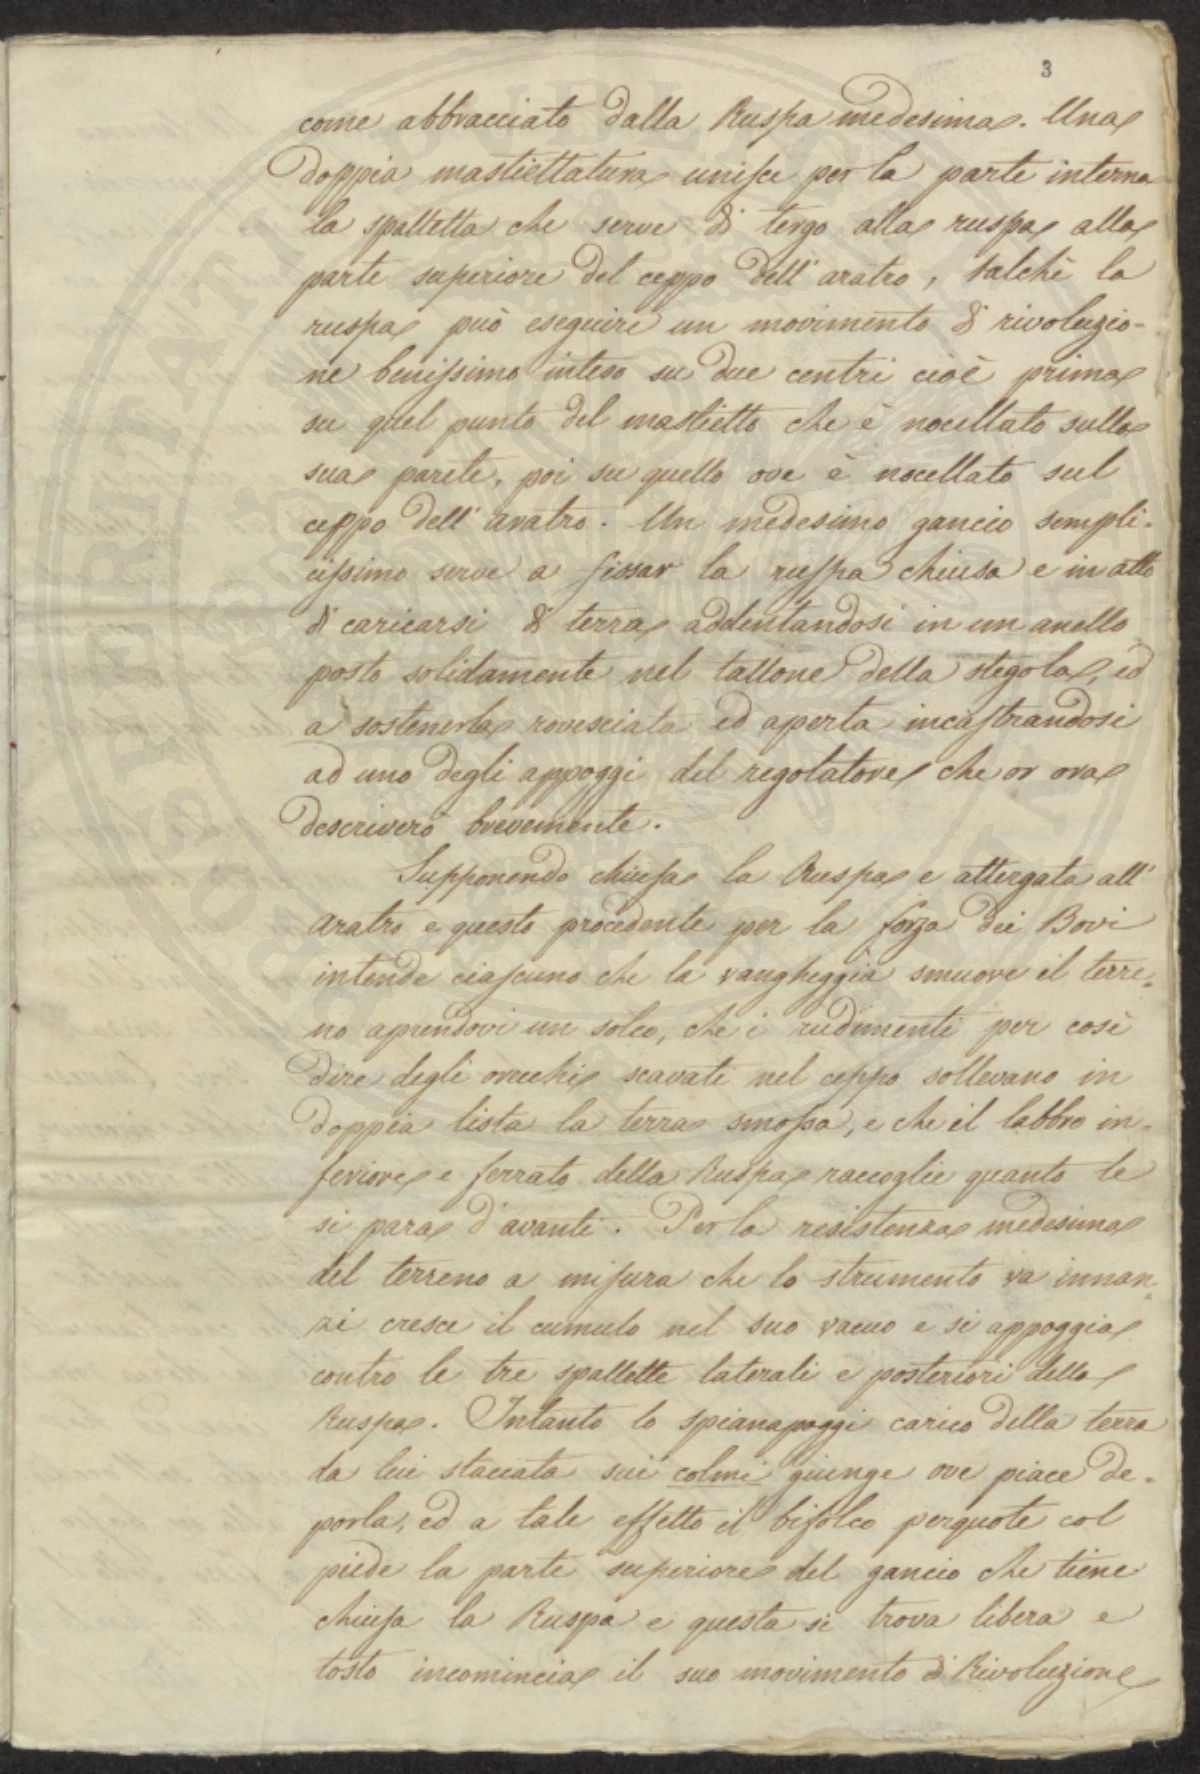 3
come abbracciato dalla Ruspa medesima. Una
doppia mastiettatura unisce per la parte interna
la spalletta che serve di tergo alla ruspa alla
parte superiore del ceppo dell' aratro, talchè la
ruspa può eseguire un movimento di rivoluzio-
ne benissimo inteso su due centri cioè prima
su quel punto del mastietto che è nocellato sulla
sua parete, poi su quello ove è nocellato sul
ceppo dell' aratro. Un medesimo gancio sempli-
cissimo serve a fissar la ruspa chiusa e in atto
di caricarsi di terra addentandosi in un anello
posto solidamente nel tallone della stegola, ed
a sostenerla rovesciata ed aperta incastrandosi
ad uno degli appoggi del regolatore che or ora
descriverò brevemente.
Supponendo chiusa la Ruspa e attergata all'
aratro e questo procedente per la forza dei Bovi
intende ciascuno che la vangheggia smuove il terre-
no aprendovi un solco, che i rudimenti per così
dire degli orecchi scavati nel ceppo sollevano in
doppia lista la terra smossa, e che il labbro in-
feriore e ferrato della Ruspa raccoglie quanto le
si para d'avanti. Per la resistenza medesima
del terreno a misura che lo strumento va innan-
zi cresce il cumulo nel suo vacuo e si appoggia
contro le tre spallette laterali e posteriori della
Ruspa. Intanto lo spianapoggi carico della terra
da lui staccata sui colmi giunge ove piace de-
porla, ed a tale effetto il bifolco perquote col
piede la parte superiore del gancio che tiene
chiusa la Ruspa e questa si trova libera e
tosto incomincia il suo movimento di Rivoluzione
BOSPERITATI PUBLICAE